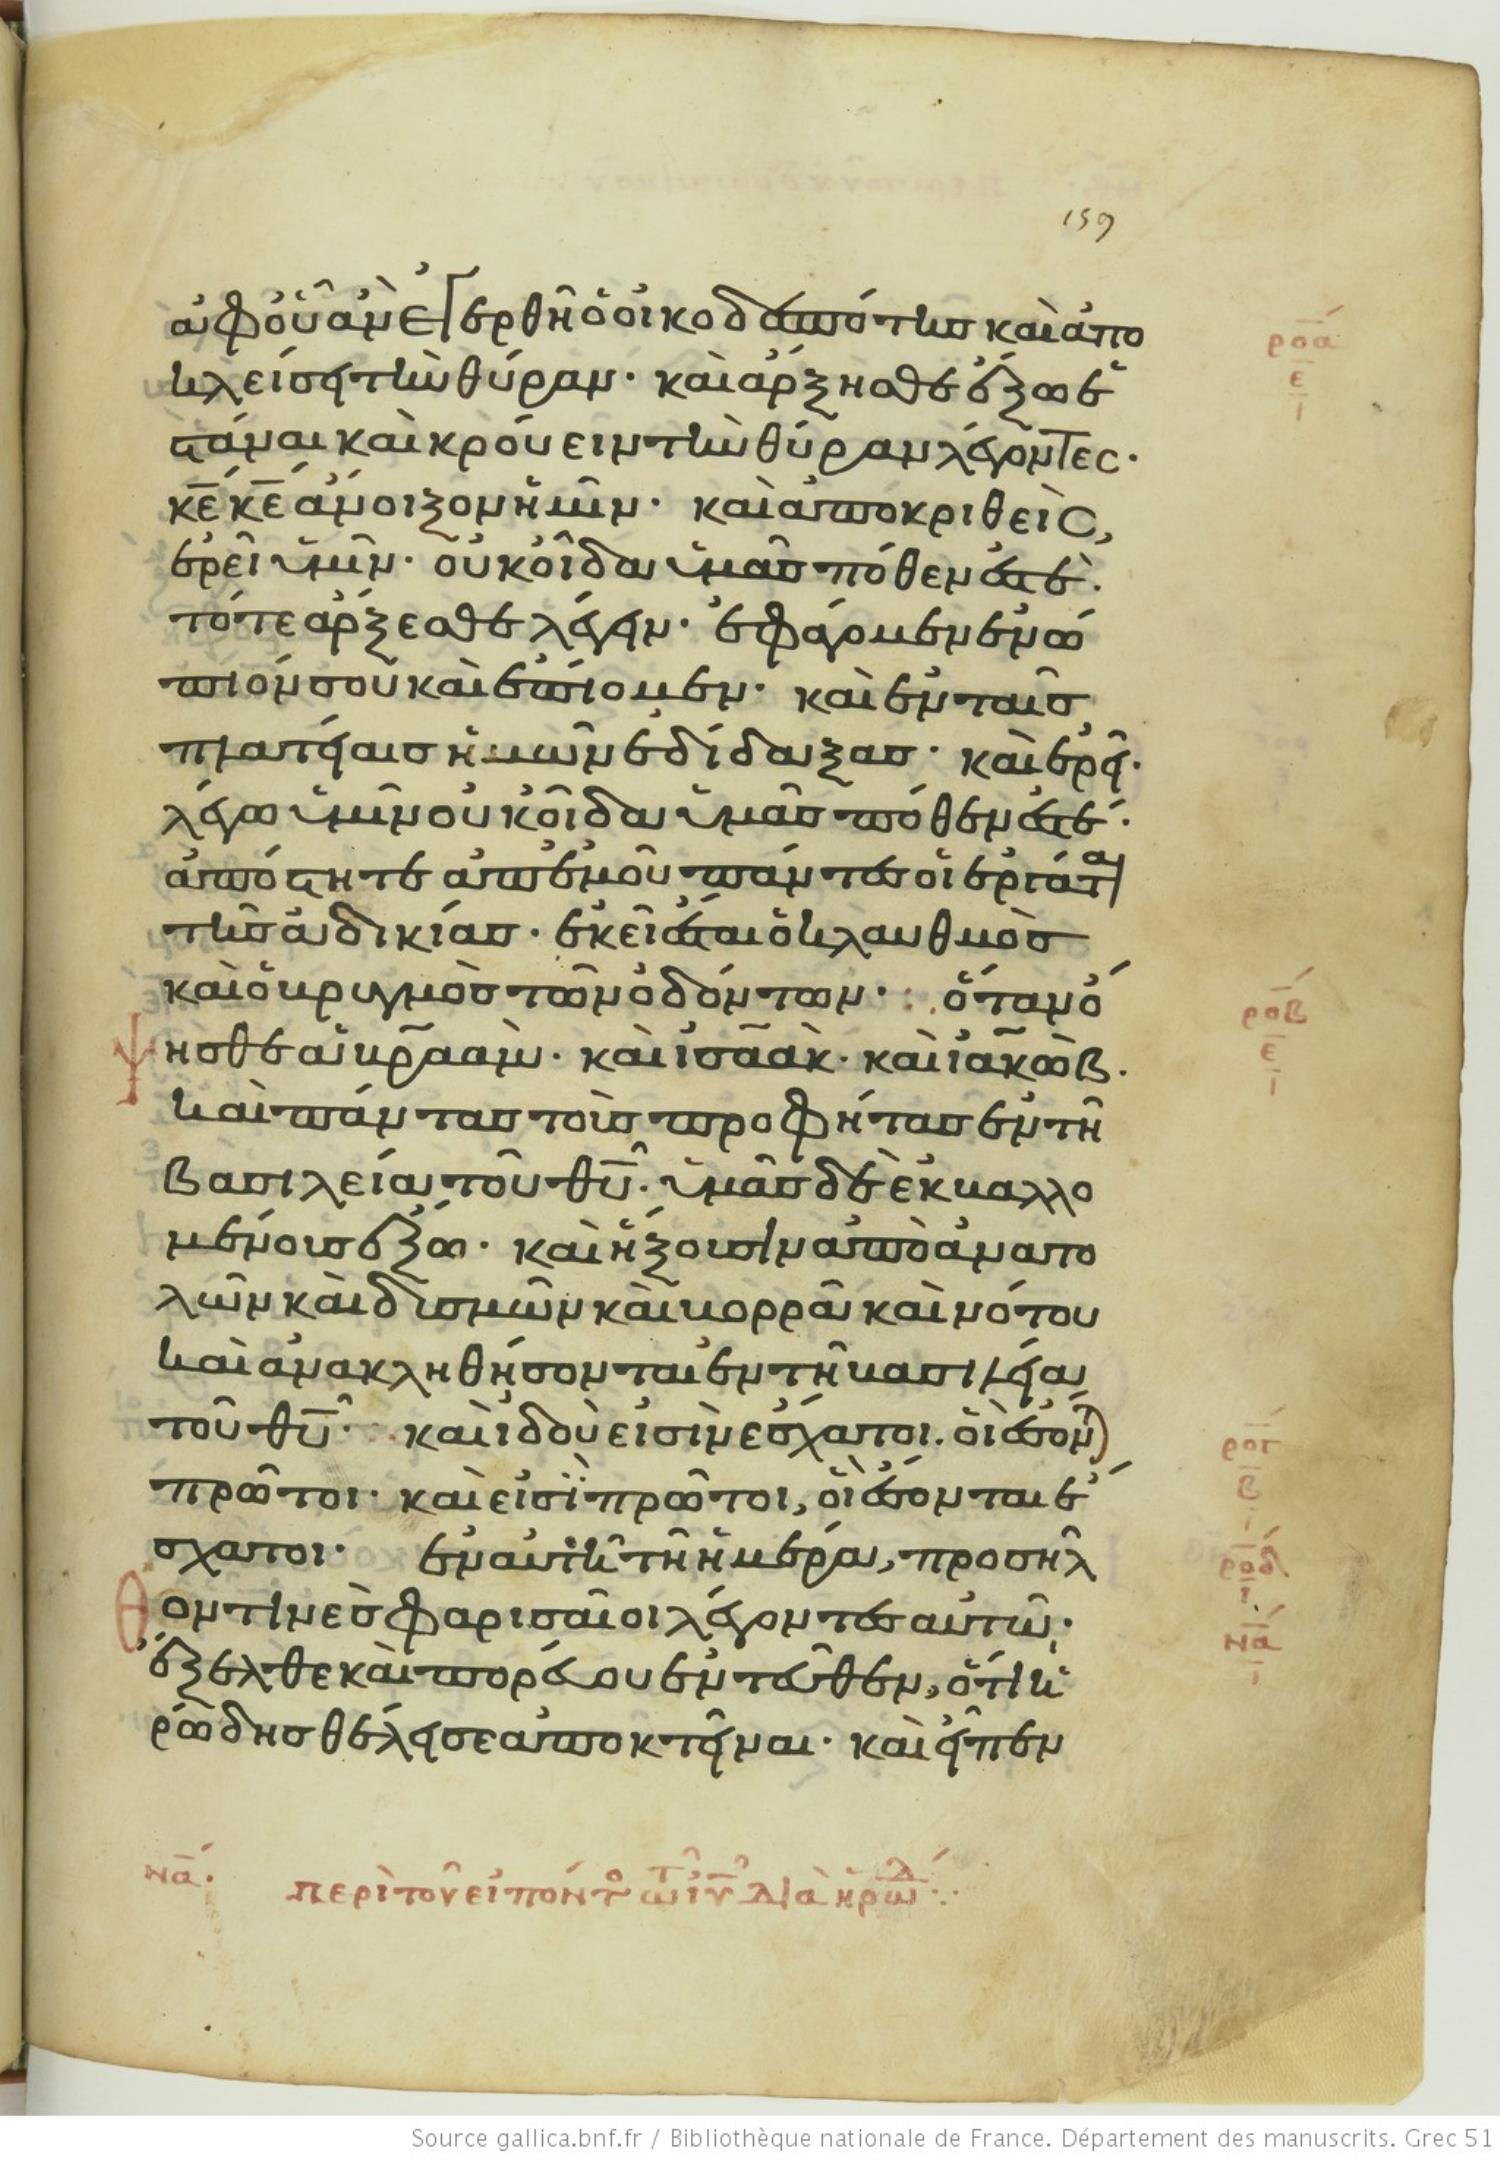 159
ἀφ' οὗ ἂν ἐγερθῆ ὁ οἰκοδεσπότης καὶ ἀπο
κλείση τὴν θύραν· καὶ ἄρξησθε ἔξω ἑ
στάναι καὶ κρούειν τὴν θύραν λέγοντες·
κε κε ἄνοιξον ἡμῖν· καὶ ἀποκριθεὶς,
ἐρεῖ ὑμῖν· οὐκ οἶδα ὑμᾶς πόθεν ἐστὲ·
τότε ἄρξεσθε λέγειν· ἐφάγομεν ἐνώ
πιόν σου καὶ ἐπίομεν· καὶ ἐν ταῖς
πλατείαις ἡμῶν ἐδίδαξας· καὶ ἐρεῖ·
λέγω ὑμῖν οὐκ οἶδα ὑμᾶς πόθεν ἐστέ·
ἀπόστητε ἀπ' ἐμοῦ πάντες οἱ ἐργάται
τῆς ἀδικίας· ἐκεῖ ἔσται ὁ κλαυθμὸς
καὶ ὁ βρυγμὸς τῶν ὀδόντων· ὅταν ὄ
ψησθε ἀβρααμ· καὶ ἰσαὰκ· καὶ ἰακὼβ·
καὶ πάντας τοὺς προφήτας ἐν τῆ
βασιλεία τοῦ θυ· ὑμᾶς δὲ ἐκβαλλο
μένους ἔξω· καὶ ἥξουσιν ἀπὸ ἀνατο
λῶν καὶ δυσμῶν καὶ βορρᾶ καὶ νότου
καὶ ἀνακληθήσονται ἐν τῆ βασιλεία
τοῦ θυ· καὶ ἰδοὺ εἰσὶν ἔσχατοι· οἳ ἔσονται
πρῶτοι· καὶ εἰσὶ πρῶτοι, οἳ ἔσονται ἔ
σχατοι· ἐν αὐτῆ τῆ ἡμέρα, προσῆλ
θον τινὲς φαρισαῖοι λέγοντες αὐτῶ·
ἔξελθε καὶ πορεύου ἐντεῦθεν, ὅτι ἡ
ρώδης θέλει σε ἀποκτεῖναι· καὶ εἶπεν
να· περὶ τῶν εἰπόντων τῶ ιυ διὰ ἡρώδ
ροα
ε
ι
ροβ
ε
ι
ρογ
β
ι
ροδ
ι
να
Source gallica.bnf.fr / Bibliothèque nationale de France. Département des manuscrits. Grec 51